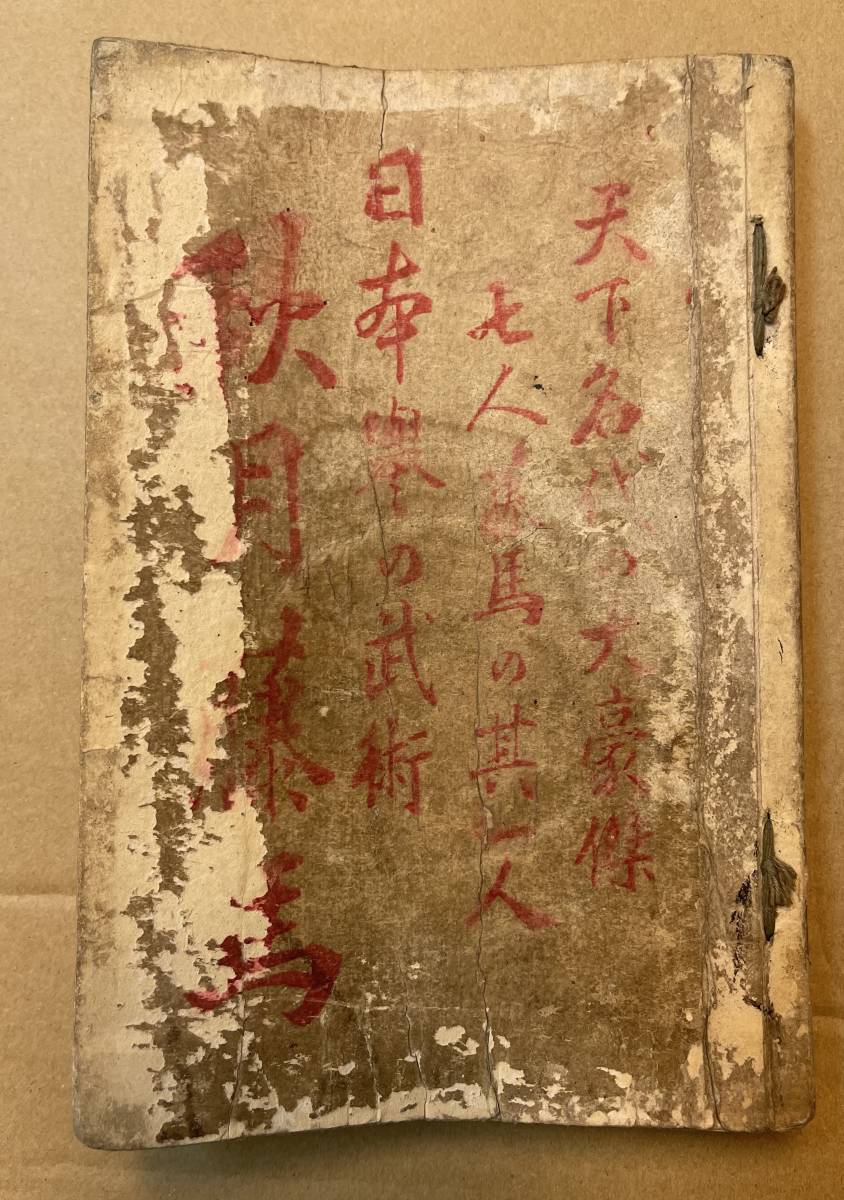 天下名代の大豪傑
七人馬の其一人
日本の武術
秋月藤馬